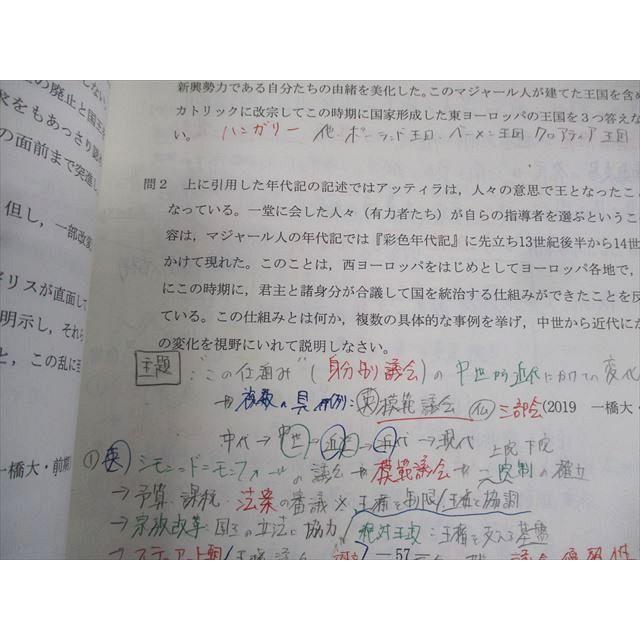 新興勢力である自分たちの由緒を美化した。このマジャール人が建てた王国を含め
カトリックに改宗してこの時期に国家形成した東ヨーロッパの王国を3つ答えな
い。 ハンガリー 他 ポーランド王国・ベーメン王国 クロアティア王国
問2 上に引用した年代記の記述ではアッティラは，人々の意思で王となったこ
なっている。一堂に会した人々（有力者たち）が自らの指導者を選ぶというこ
容は，マジャール人の年代記では『彩色年代記』に先立ち13世紀後半から14世
かけて現れた。このことは，西ヨーロッパをはじめとしてヨーロッパ各地で，
にこの時期に，君主と諸身分が合議して国を統治する仕組みができたことを反
ている。この仕組みとは何か，複数の具体的な事例を挙げ，中世から近代にか
の変化を視野にいれて説明しなさい。
主題 "この仕組み"(身分制議会)の中世から近代にかけての変化
複数の具体例: 英 模範議会 仏 三部会 (2019 一橋大
古代→中世→近世→近代→現代 上院 下院
① 英 シモン=ド=モンフォールの議会 模範議会 二院制の確立
→予算・課税・法案の審議 × 王権を制限/王権と協調
→宗教改革・国王の立法に協力/絶対王政:王権を支える基盤
→ステュアート朝
— 57 —
の廃止と国王
をもあっさり
の面前まで突進し
但し，一部改
ギリスが直面して
明示し，それら
と，この乱に至
一橋大・前期